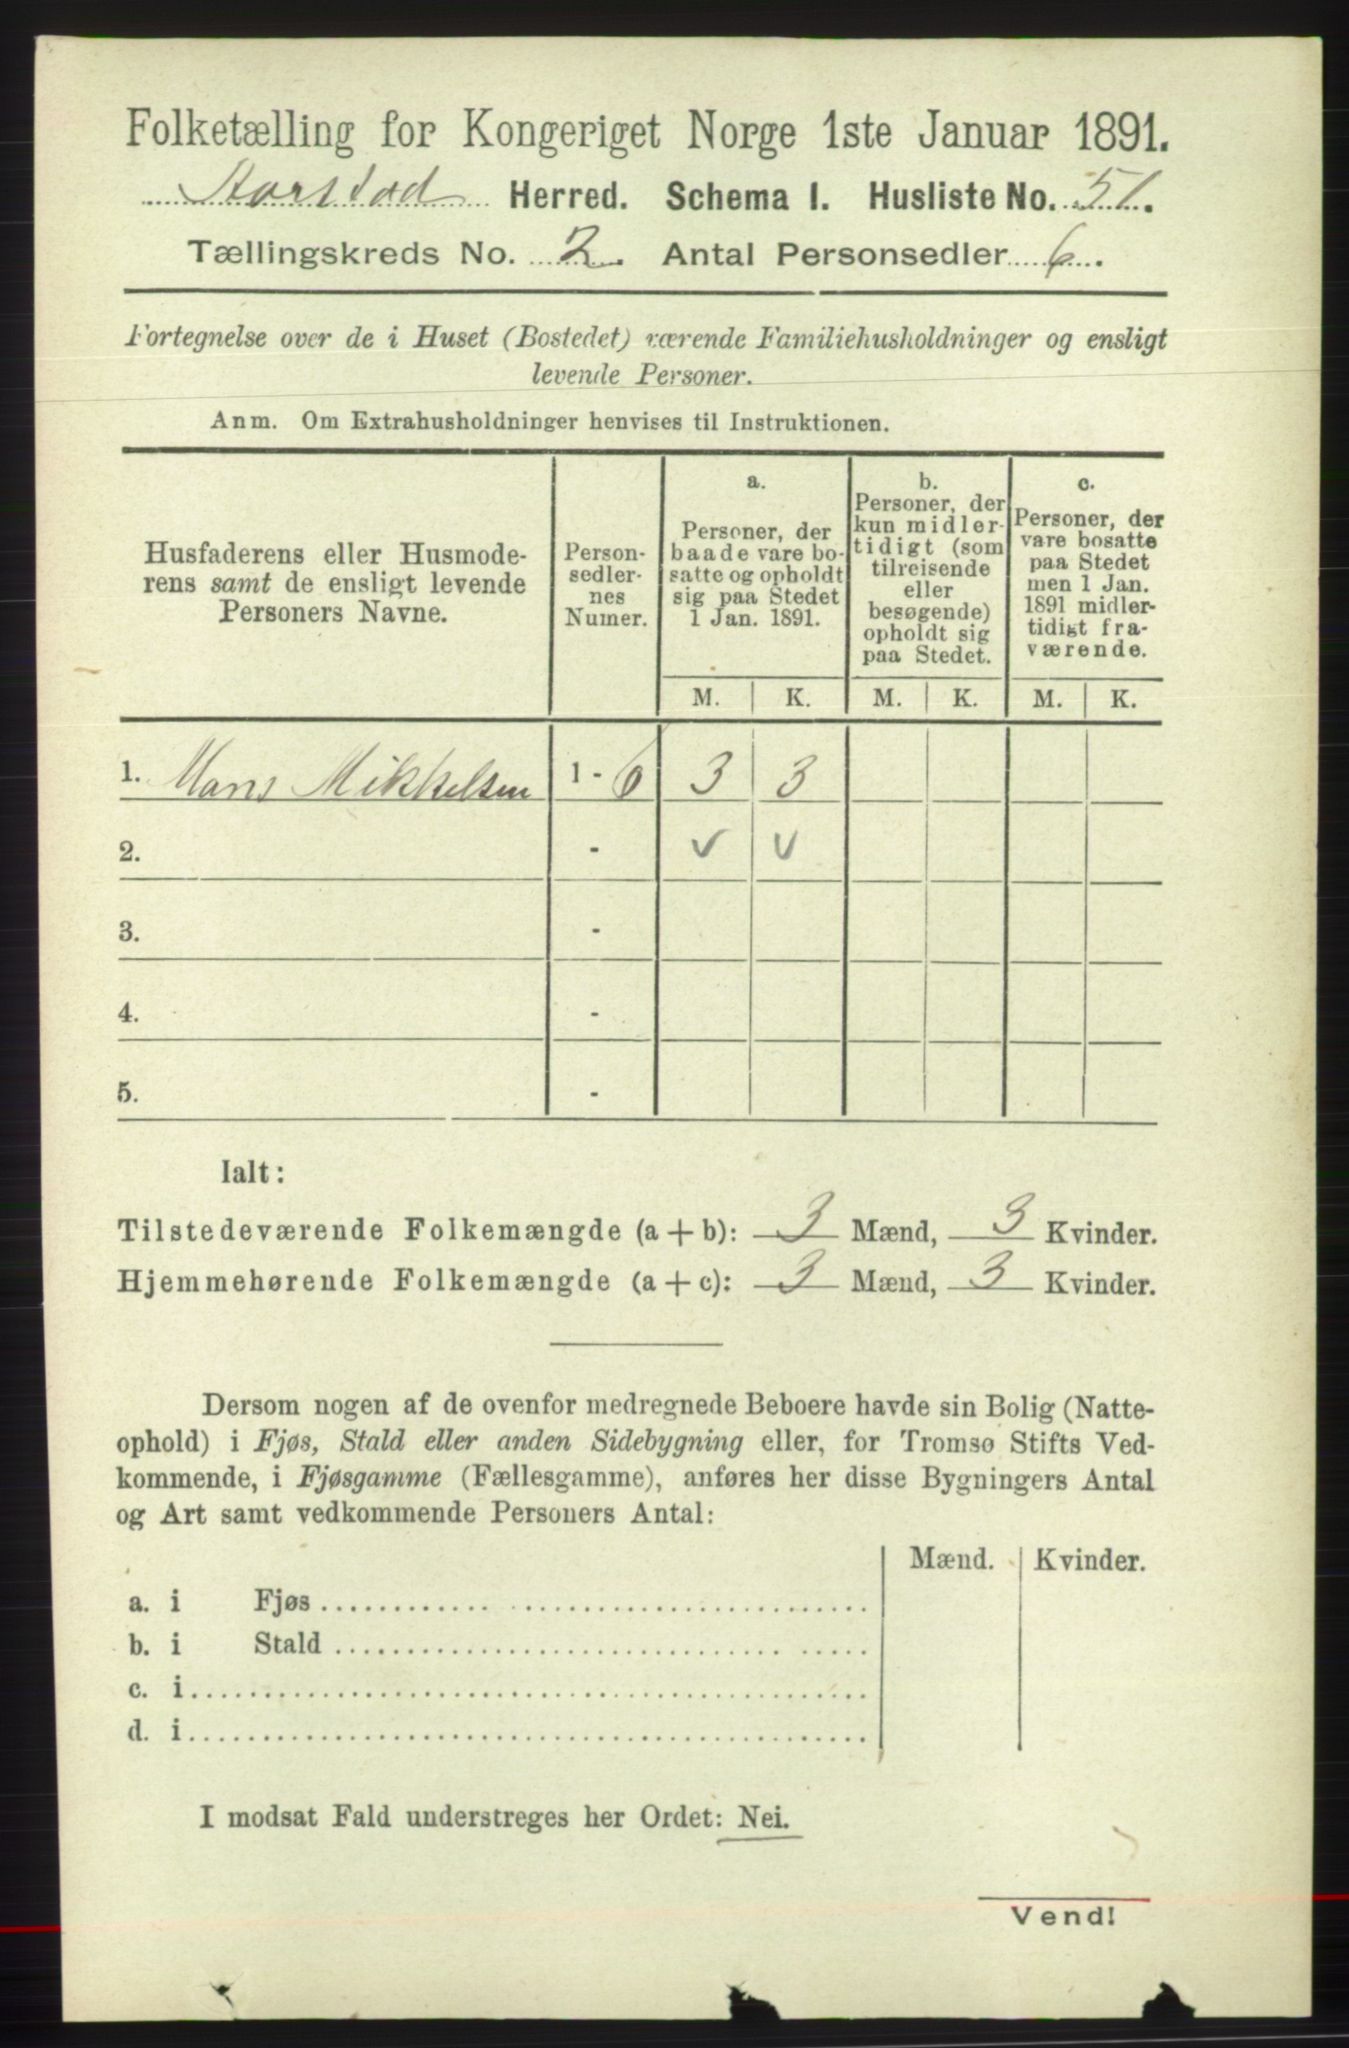 Folketælling for Kongeriget Norge 1ste Januar 1891.
Aarstad Herred. Schema I. Husliste No. 51.
Tællingskreds No. 2. Antal Personsedler 6.
Fortegnelse over de i Huset (Bostedet) værende Familiehusholdninger og ensligt
levende Personer.
Anm. Om Extrahusholdninger henvises til Instruktionen.
Husfaderens eller Husmode-
rens samt de ensligt levende
Personers Navne.
Person-
sedler-
nes
Numer.
a.
Personer, der
baade vare bo-
satte og opholdt
sig paa Stedet
1 Jan. 1891.
b.
Personer, der
kun midler-
tidigt (som
tilreisende
eller
besøgende)
opholdt sig
paa Stedet.
c.
Personer, der
vare bosatte
paa Stedet
men 1 Jan.
1891 midler-
tidigt fra-
værende.
M. K. M. K. M. K.
1. Mons Mikkelsen 1 - 6 3 3
2. - v v
3. -
4. -
5. -
Ialt:
Tilstedeværende Folkemængde (a + b): 3 Mænd, 3 Kvinder.
Hjemmehørende Folkemængde (a + c): 3 Mænd, 3 Kvinder.
Dersom nogen af de ovenfor medregnede Beboere havde sin Bolig (Natte-
ophold) i Fjøs, Stald eller anden Sidebygning eller, for Tromsø Stifts Ved-
kommende, i Fjøsgamme (Fællesgamme), anføres her disse Bygningers Antal
og Art samt vedkommende Personers Antal:
Mænd. Kvinder.
a. i Fjøs
b. i Stald
c. i
d. i
I modsat Fald understreges her Ordet: Nei.
Vend!